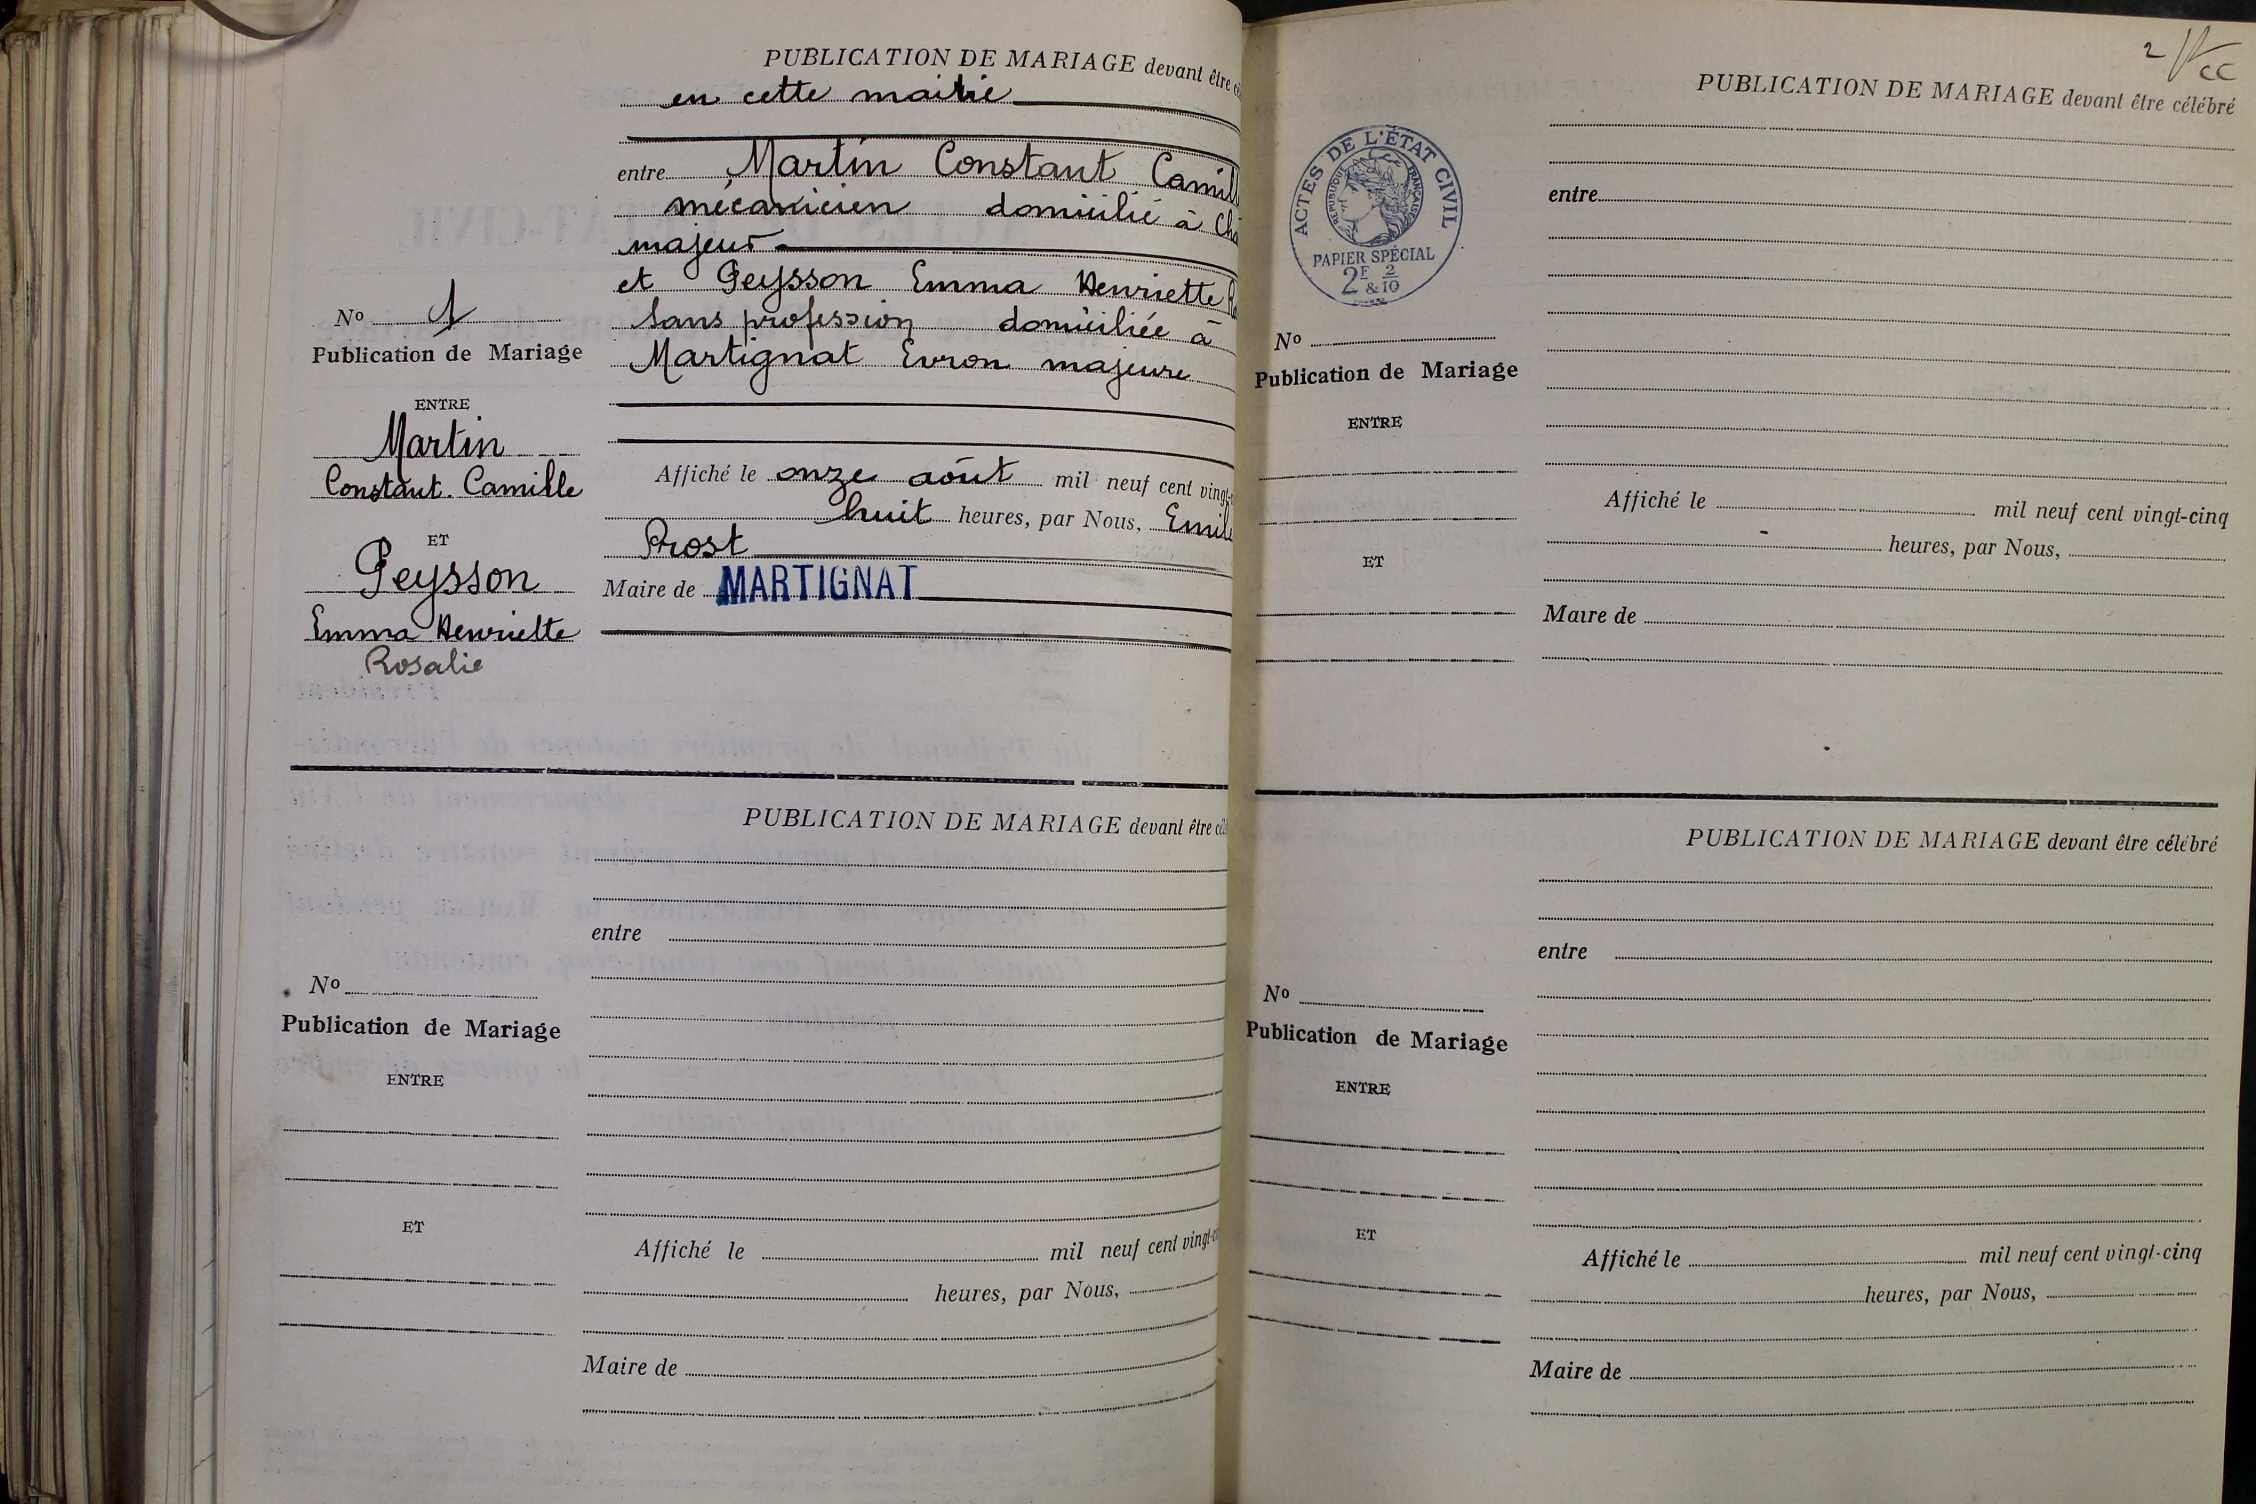 PUBLICATION DE MARIAGE devant être
en cette mairie
entre Martin Constant Camill
mécanicien domicilié à Châ
majeur
et Peysson Emma Henriette
Sans profession domiciliée à
Martignat Evron majeure
No 1
Publication de Mariage
ENTRE
Martin
Constant Camille
ET
Peysson
Emma Henriette
Rosalie
Affiché le onze août mil neuf cent vingt-
huit heures, par Nous, Emile
Prost
Maire de MARTIGNAT
PUBLICATION DE MARIAGE devant être
entre
No
Publication de Mariage
ENTRE
ET
Affiché le mil neuf cent vingt-
heures, par Nous,
Maire de
2
PUBLICATION DE MARIAGE devant être célébré
ACTES DE L'ÉTAT CIVIL
RÉPUBLIQUE FRANÇAISE
PAPIER SPÉCIAL
2F & 2/10
entre
No
Publication de Mariage
ENTRE
ET
Affiché le mil neuf cent vingt-cinq
heures, par Nous,
Maire de
PUBLICATION DE MARIAGE devant être célébré
entre
No
Publication de Mariage
ENTRE
ET
Affiché le mil neuf cent vingt-cinq
heures, par Nous,
Maire de